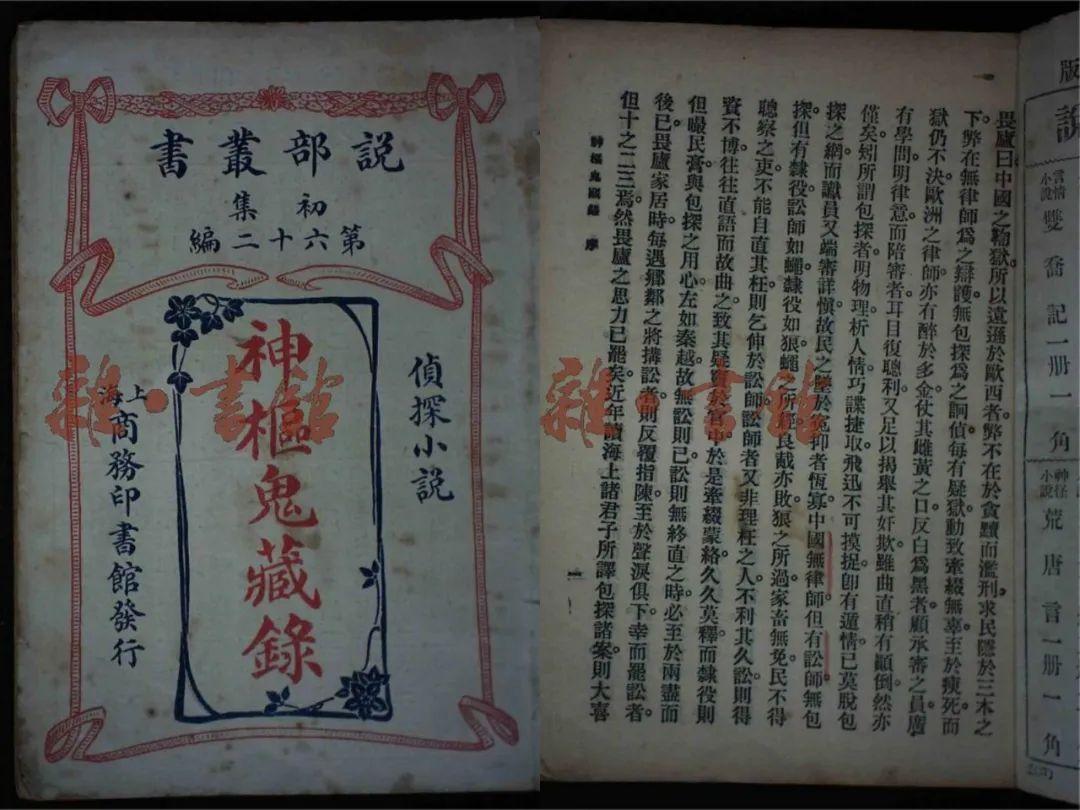 說部叢書
初集
第六十二編
偵探小說
神樞鬼藏錄
上海商務印書館發行
雜·書館
版
說
言情小說 雙喬記一册一角
神怪小說 荒唐言一册一角
畏廬曰中國之鞫獄所以遠遜於歐西者。弊不在於貪黷而濫刑。求民隱於三木之
下。弊在無律師爲之辯護。無包探爲之詗偵。每有疑獄。動致牽綴無辜。至於瘐死。而
獄仍不決。歐洲之律師。亦有醉於多金。仗其雌黃之口。反白爲黑者。顧承審之員。廣
有學問。明律意。而陪審者耳目復聰利。又足以揭舉其奸欺。雖曲直稍有顚倒。然亦
僅矣。矧所謂包探者。明物理。析人情。巧諜捷取。飛迅不可摸捉。卽有遁情。已莫脫包
探之網。而讞員又端審詳愼。故民之墜於冤抑者恆寡。中國無律師。但有訟師。無包
探。但有隸役。訟師如蠅。隸役如狼。蠅之所經。良胾亦敗。狼之所過。家畜無免。民不得
聽察之吏。不能自直其枉。則乞伸於訟師。訟師者又非理枉之人。不利其久訟。則得
資不博。往往直語而故曲之。致其疑竇於官中。於是牽綴蒙絡。久久莫釋。而隸役則
但嘬民膏。與包探之用心。左如秦越。故無訟則已。訟則無終直之時。必至於兩盡而
後已。畏廬家居時。每遇鄉鄰之將搆訟者。則反覆指陳。至於聲淚俱下。幸而罷訟者。
但十之二三焉。然畏廬之思力已罷矣。近年讀海上諸君子所譯包探諸案。則大喜
神樞鬼藏錄 序
一